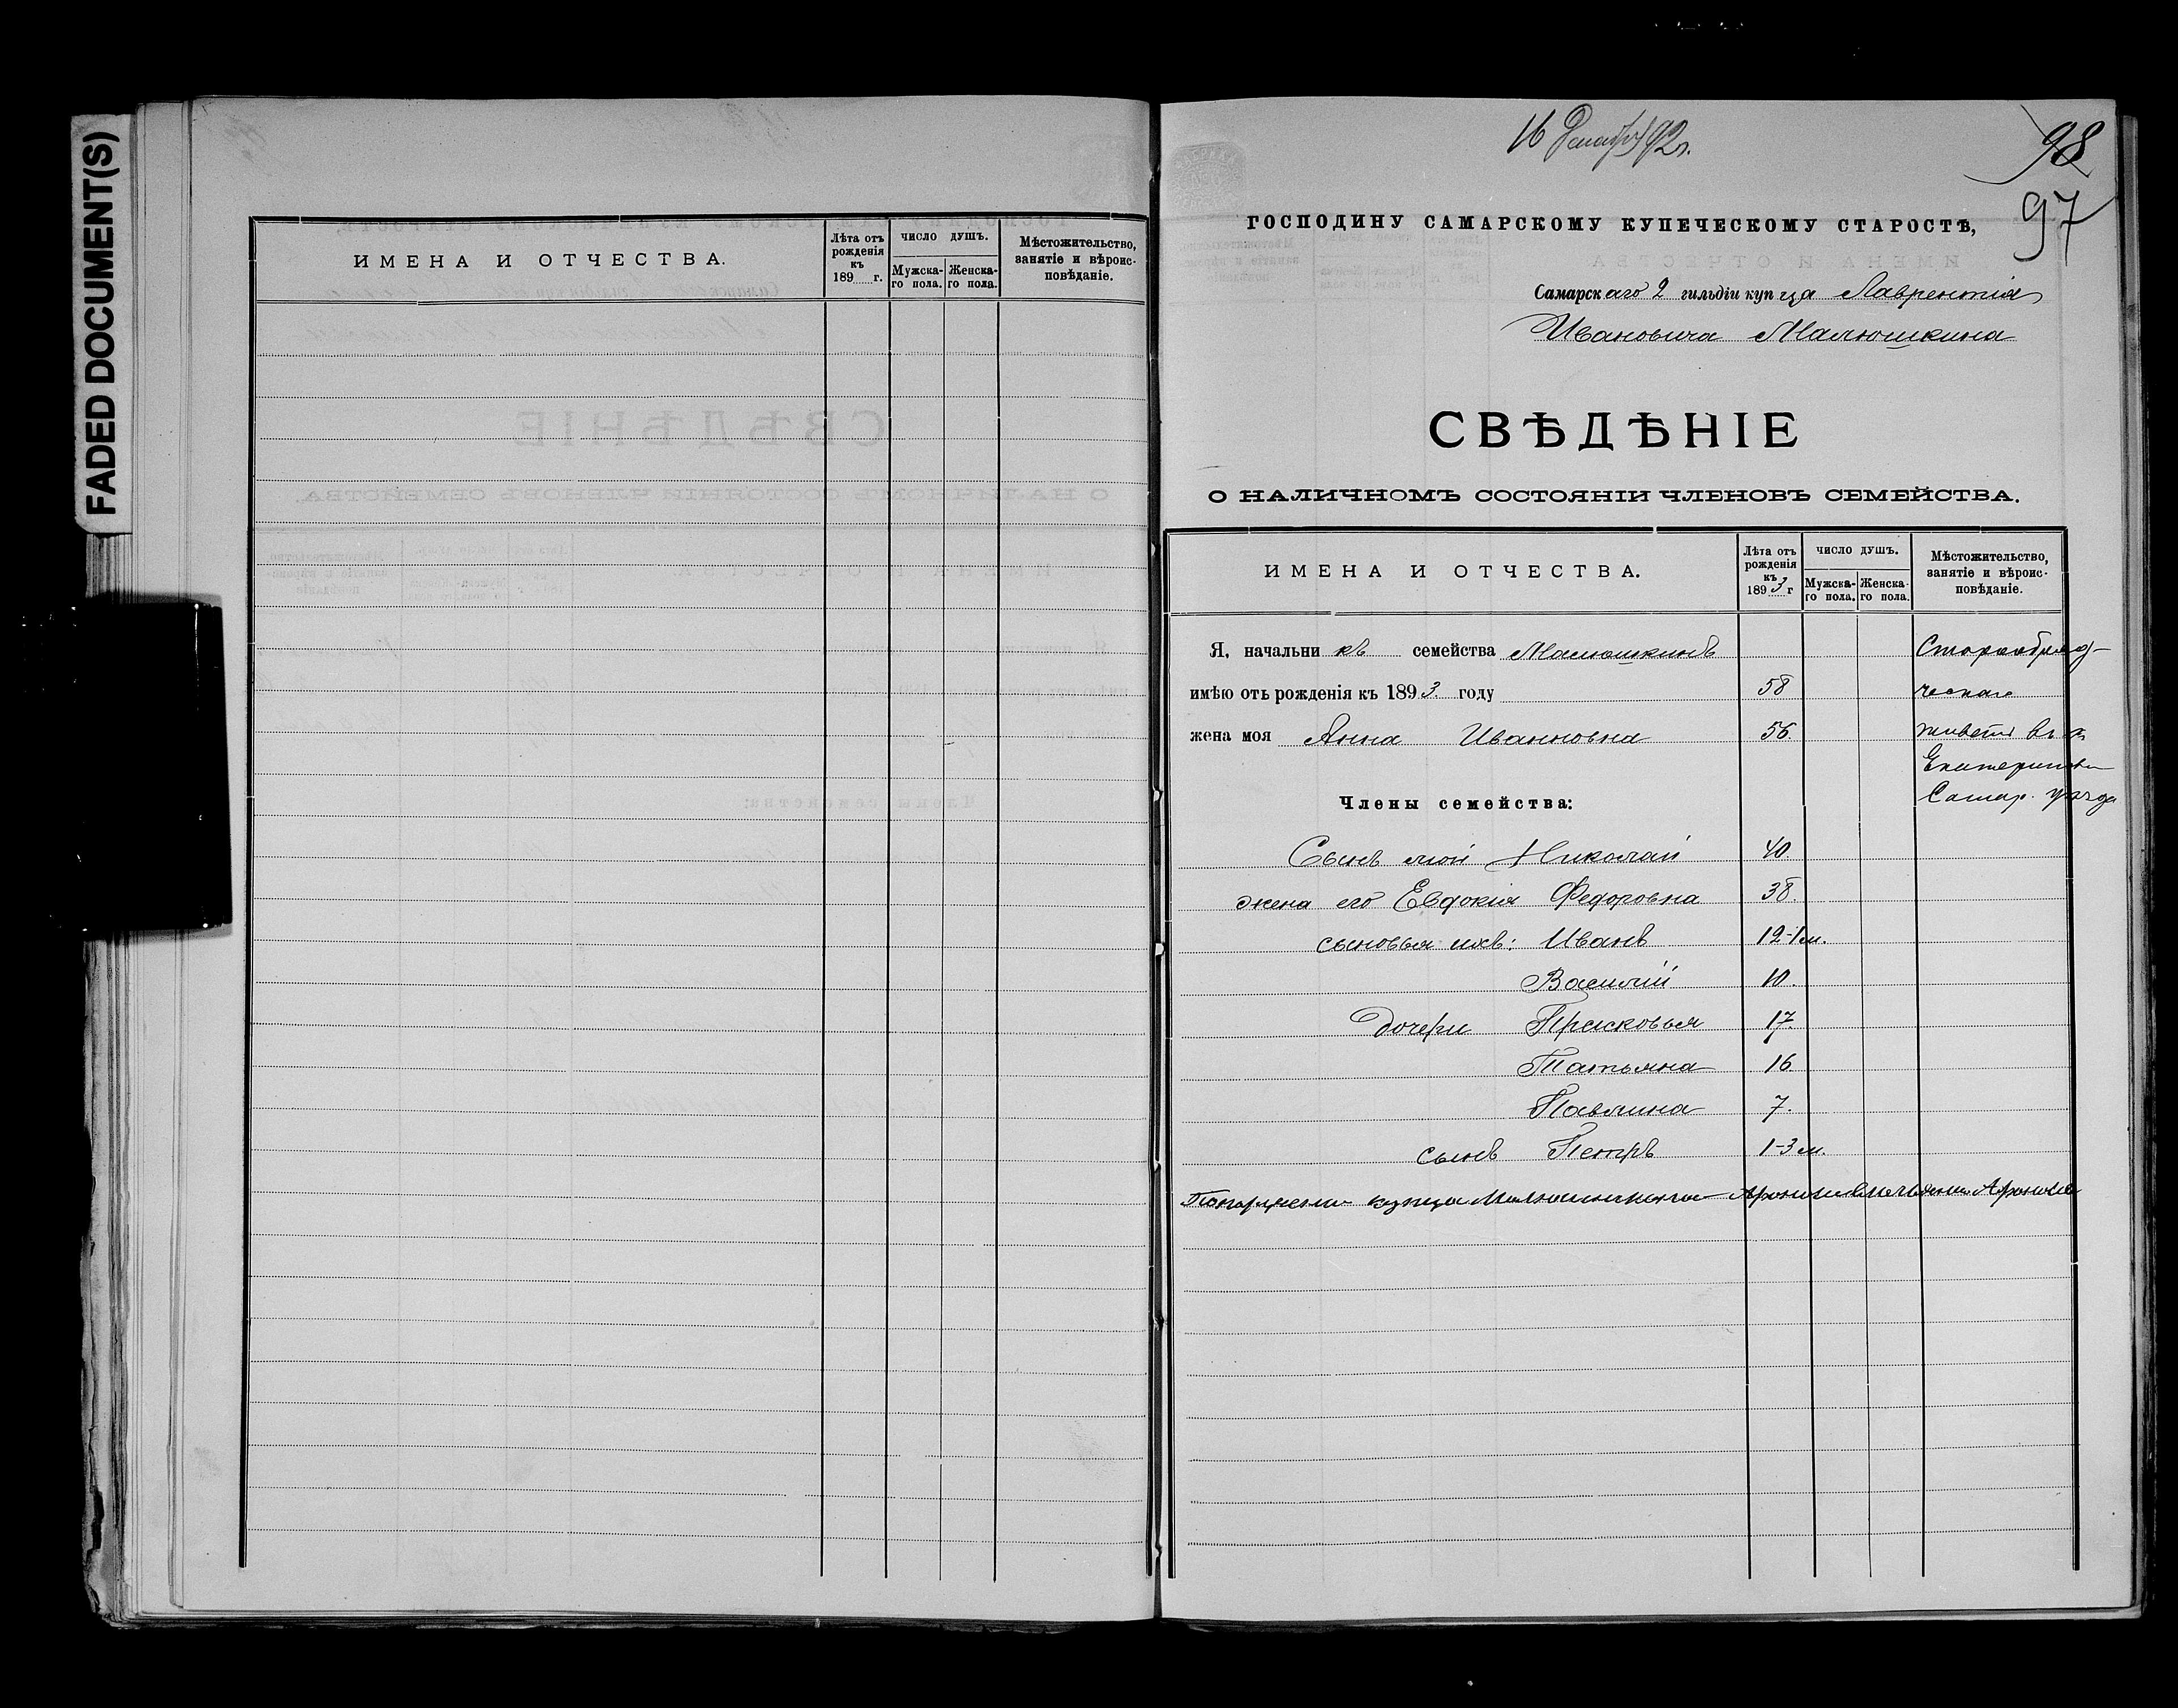 FADED DOCUMENT(S)
ИМЕНА И ОТЧЕСТВА.
Лѣта отъ рожденія къ 189 г.
ЧИСЛО ДУШЪ.
Мужска-го пола.
Женска-го пола.
Мѣстожительство, занятіе и вѣроис-повѣданіе.
16 Декабр 92 г.
98
97
ГОСПОДИНУ САМАРСКОМУ КУПЕЧЕСКОМУ СТАРОСТѢ,
Самарскаго 2 гильдіи купца Лаврентія
Ивановича Малюшкина
СВѢДѢНІЕ
О НАЛИЧНОМЪ СОСТОЯНІИ ЧЛЕНОВЪ СЕМЕЙСТВА.
ИМЕНА И ОТЧЕСТВА.
Лѣта отъ рожденія къ 1893 г
ЧИСЛО ДУШЪ.
Мужска-го пола.
Женска-го пола.
Мѣстожительство, занятіе и вѣроис-повѣданіе.
Я, начальникъ семейства Малюшкинъ Старообряд-
имѣю отъ рожденія къ 1893 году 58 ческаго
жена моя Анна Ивановна 56. живетъ въ с.
Екатериновк
Члены семейства: Самар. уѣзда
Сынъ мой Николай 40.
жена его Евдокія Федоровна 38.
сыновья ихъ: Иванъ 12-1 м.
Василий 10.
дочери Прасковья 17.
Татьяна 16
Павлина 7.
сынъ Петръ 1-3 м.
купца Малюшкина